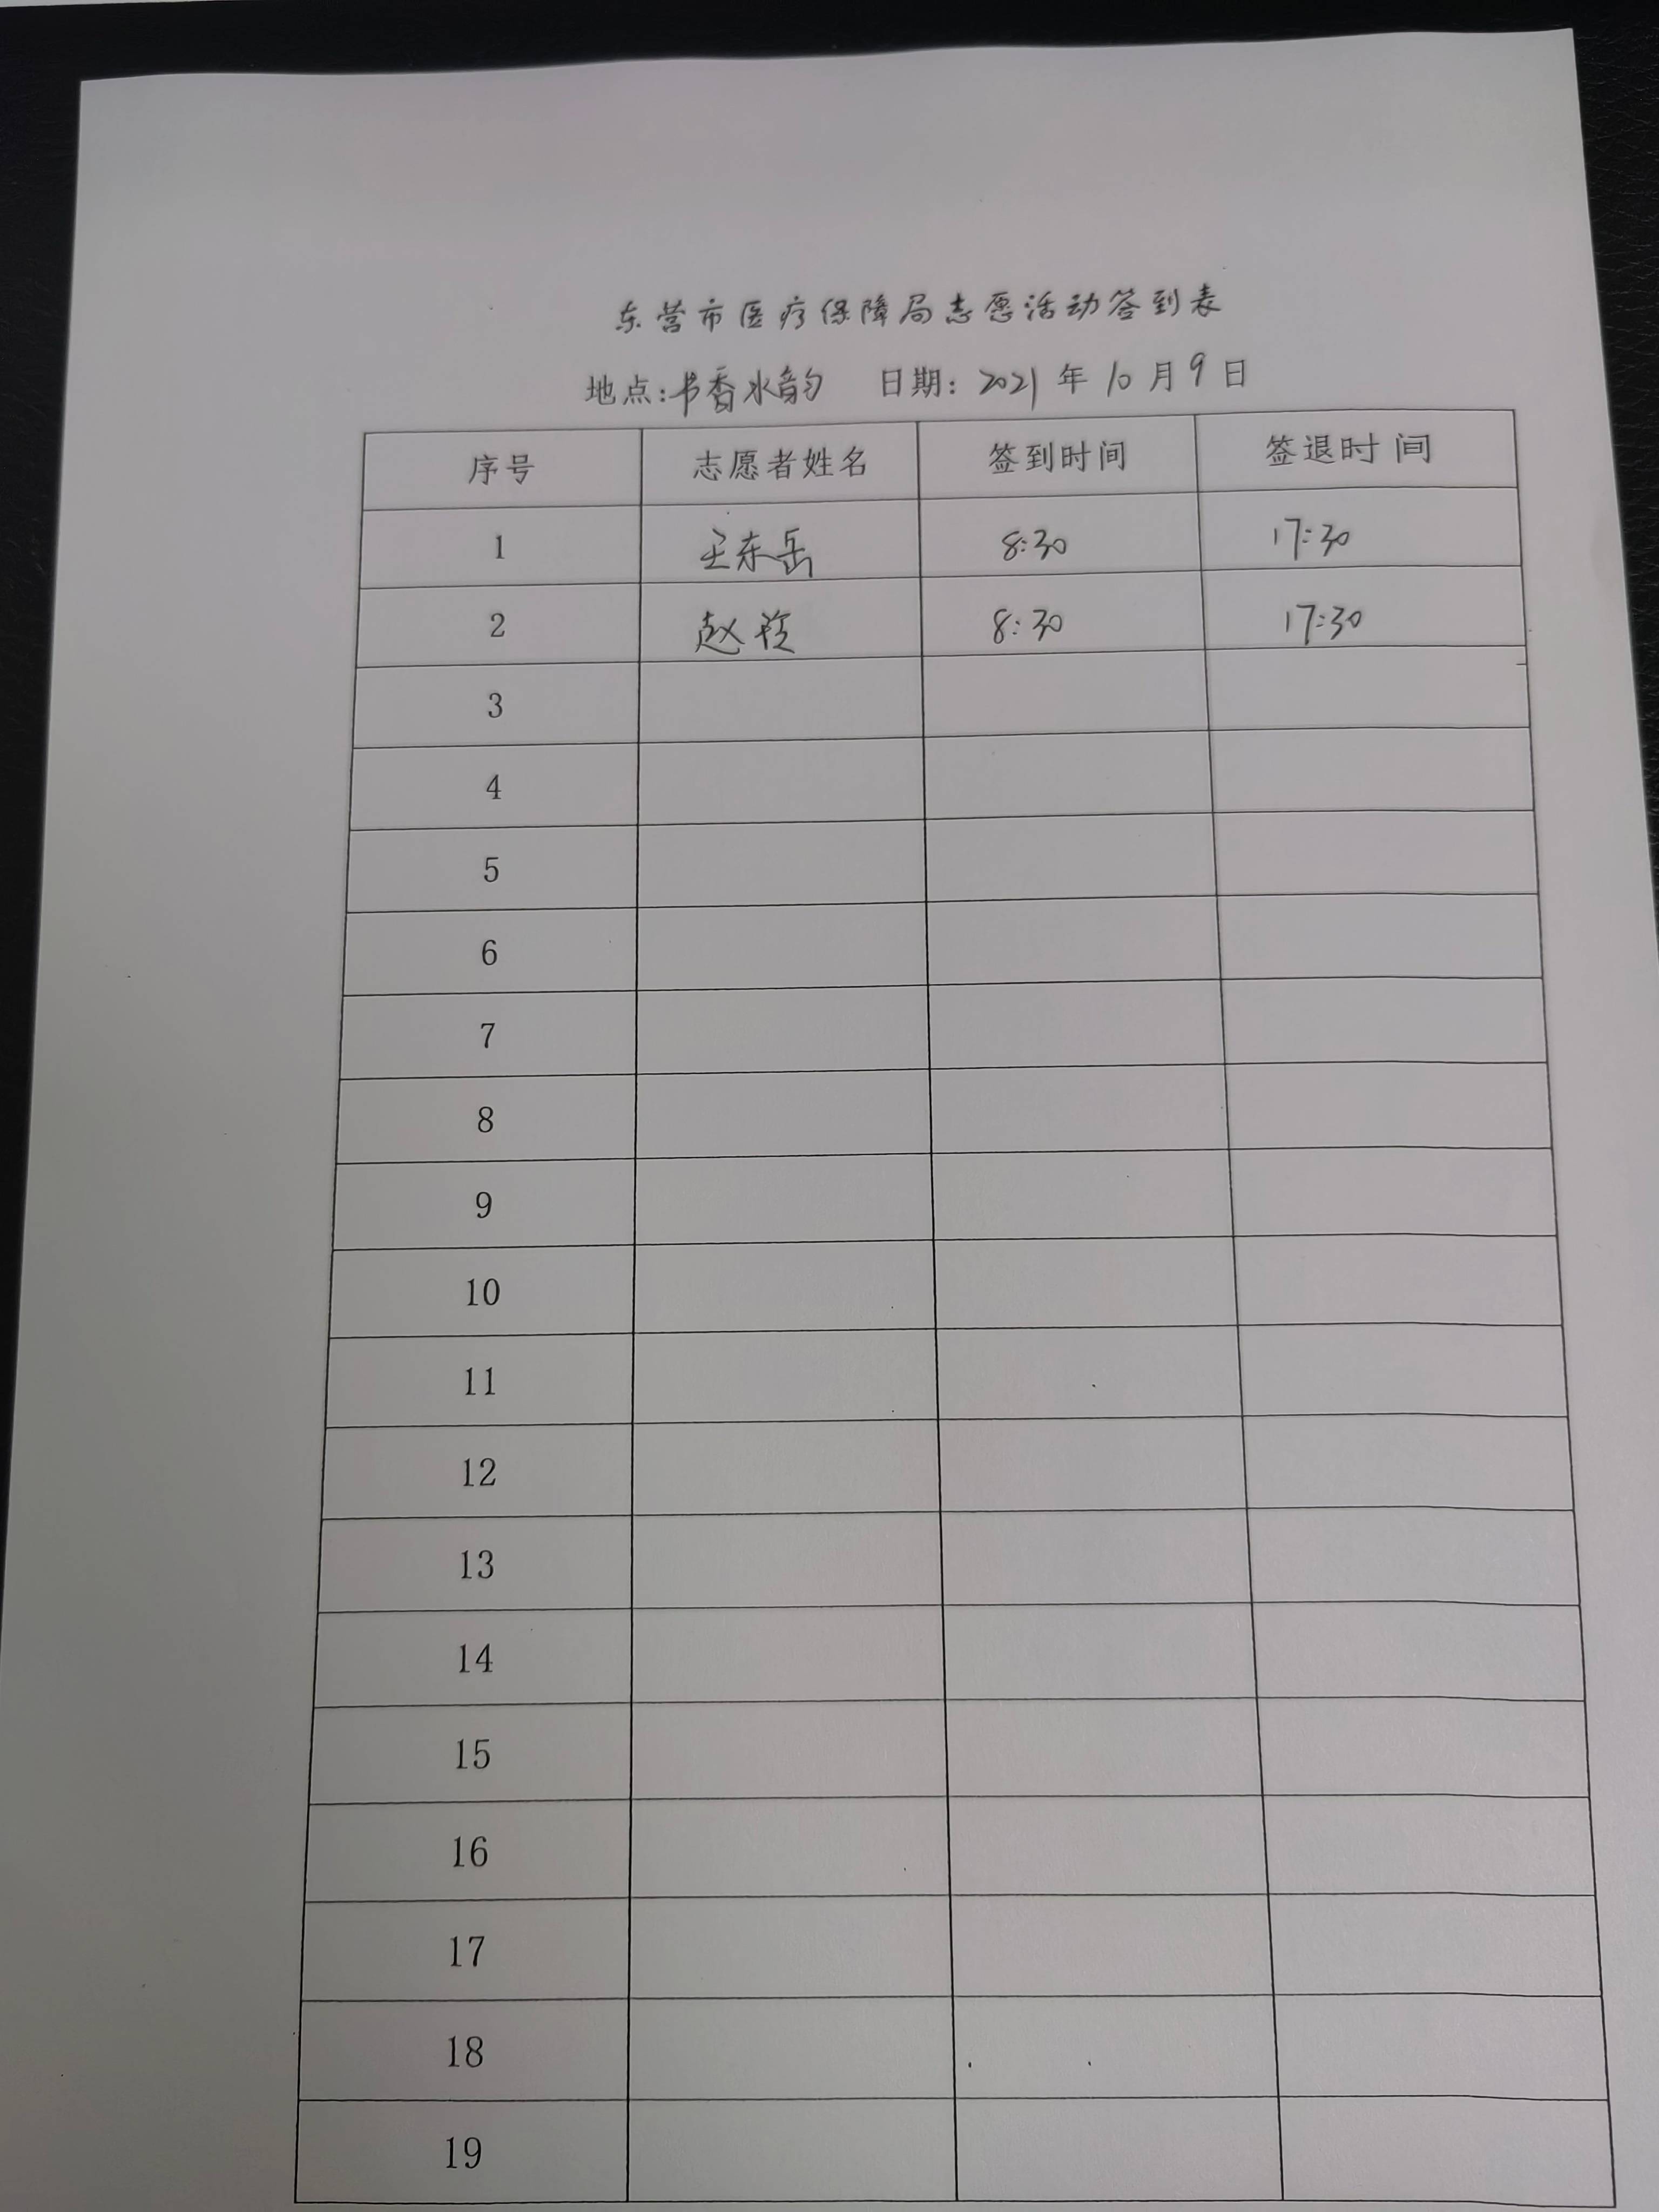 东营市医疗保障局志愿活动签到表
地点:书香水韵 日期: 2021 年 10 月 9 日
序号 志愿者姓名 签到时间 签退时间
1 王东岳 8:30 17:30
2 赵 8:30 17:30
3
4
5
6
7
8
9
10
11
12
13
14
15
16
17
18
19